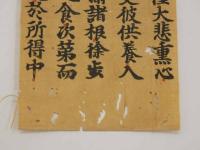 大悲熏心
受彼供養入
諸根徐步
食次第而
於所得中